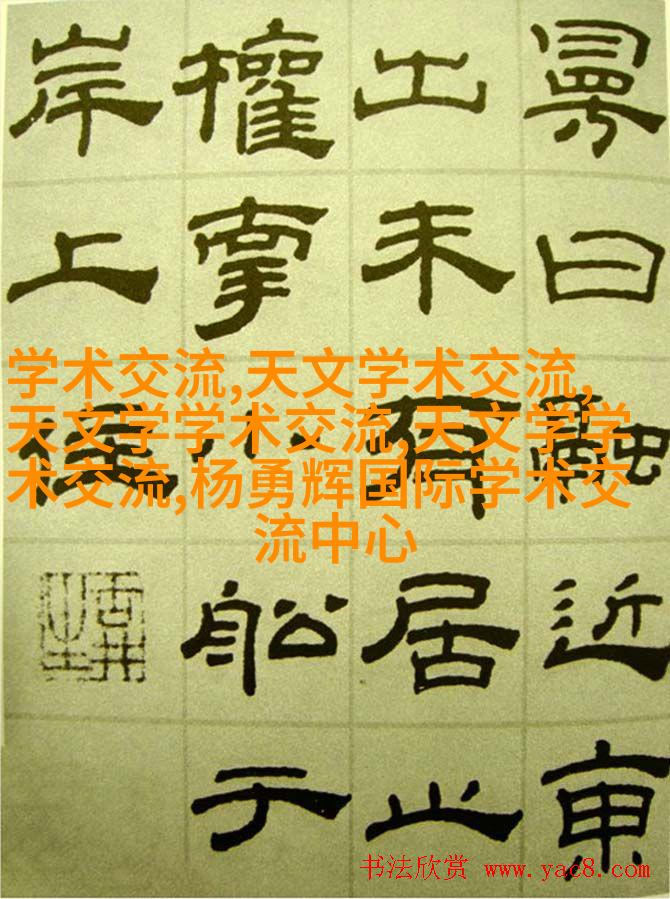 曰融近東
出未有居止
權牽小船于
岸上住
学术交流,天文学术交流,
天文学学术交流,天文学学
术交流,杨勇辉国际学术交
流中心
书法欣赏 www.yac8.com